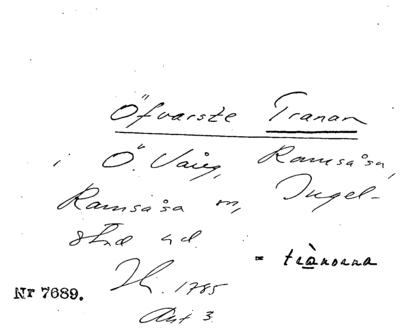 Öfvarste Tranan
i Ö. Vång, Ramsåsa,
Ramsåsa sn, Ingel-
stad hd.
= trànorna
Nr 7689.
1785
Akt 3